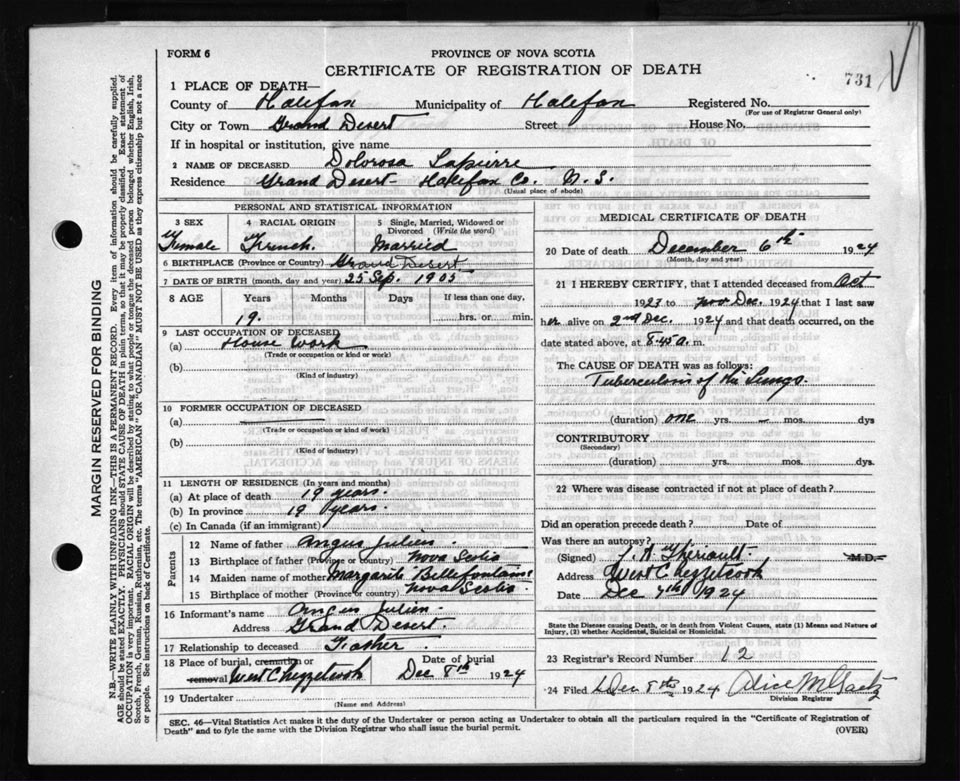 FORM 6
PROVINCE OF NOVA SCOTIA
CERTIFICATE OF REGISTRATION OF DEATH
731
1 PLACE OF DEATH—
County of Halifax Municipality of Halifax Registered No.
(For use of Registrar General only)
City or Town Grand Desert Street House No.
If in hospital or institution, give name
2 NAME OF DECEASED Dolorosa Lapierre
Residence Grand Desert Halifax Co. N. S.
(Usual place of abode)
PERSONAL AND STATISTICAL INFORMATION
3 SEX 4 RACIAL ORIGIN 5 Single, Married, Widowed or Divorced (Write the word)
Female French. Married
6 BIRTHPLACE (Province or Country) Grand Desert
7 DATE OF BIRTH (month, day and year) 25 Sep. 1905
8 AGE Years Months Days If less than one day,
19. hrs. or min.
9 LAST OCCUPATION OF DECEASED
(a) House Work
(Trade or occupation or kind of work)
(b)
(Kind of industry)
10 FORMER OCCUPATION OF DECEASED
(a)
(Trade or occupation or kind of work)
(b)
(Kind of industry)
11 LENGTH OF RESIDENCE (In years and months)
(a) At place of death 19 years.
(b) In province 19 years.
(c) In Canada (if an immigrant)
Parents
12 Name of father Angus Julien
13 Birthplace of father (Province or country) Nova Scotia
14 Maiden name of mother Margarite Bellefontaine
15 Birthplace of mother (Province or country) Nova Scotia
16 Informant's name Angus Julien
Address Grand Desert.
17 Relationship to deceased Father
18 Place of burial, cremation or removal West Chezzetcook Date of burial Dec 8th 1924
19 Undertaker
(Name and Address)
MEDICAL CERTIFICATE OF DEATH
20 Date of death December 6th 1924
(Month, day and year)
21 I HEREBY CERTIFY, that I attended deceased from Oct
1923 to Dec. 1924 that I last saw
her alive on 2nd Dec. 1924 and that death occurred, on
date stated above, at 8.45 a. m.
The CAUSE OF DEATH was as follows:
Tuberculosis of the Lungs.
(duration) one yrs. – mos. dys
CONTRIBUTORY
(Secondary)
(duration) yrs. mos. dys.
22 Where was disease contracted if not at place of death?
Did an operation precede death? Date of
Was there an autopsy?
(Signed) Theriault M.D.
Address West Chezzetcook
Date Dec 7th 1924
State the Disease causing Death, or in death from Violent Causes, state (1) Means and Nature of Injury, (2) whether Accidental, Suicidal or Homicidal.
23 Registrar's Record Number 12
24 Filed Dec 8th 1924 Alice M Gaetz
Division Registrar
SEC. 46—Vital Statistics Act makes it the duty of the Undertaker or person acting as Undertaker to obtain all the particulars required in the "Certificate of Registration of
Death" and to fyle the same with the Division Registrar who shall issue the burial permit.
(OVER)
MARGIN RESERVED FOR BINDING
N.B.—WRITE PLAINLY WITH UNFADING INK—THIS IS A PERMANENT RECORD. Every item of information should be carefully supplied.
AGE should be stated EXACTLY. PHYSICIANS should STATE CAUSE OF DEATH in plain terms, so that it may be properly classified. Exact statement of
OCCUPATION is very important. RACIAL ORIGIN will be described by stating to what people or tongue the deceased person belonged whether English, Irish,
Scotch, French, German, Russian, Ruthenian, etc. The terms "AMERICAN" OR "CANADIAN" MUST NOT BE USED as they express citizenship but not a race
or people. See instructions on back of Certificate.